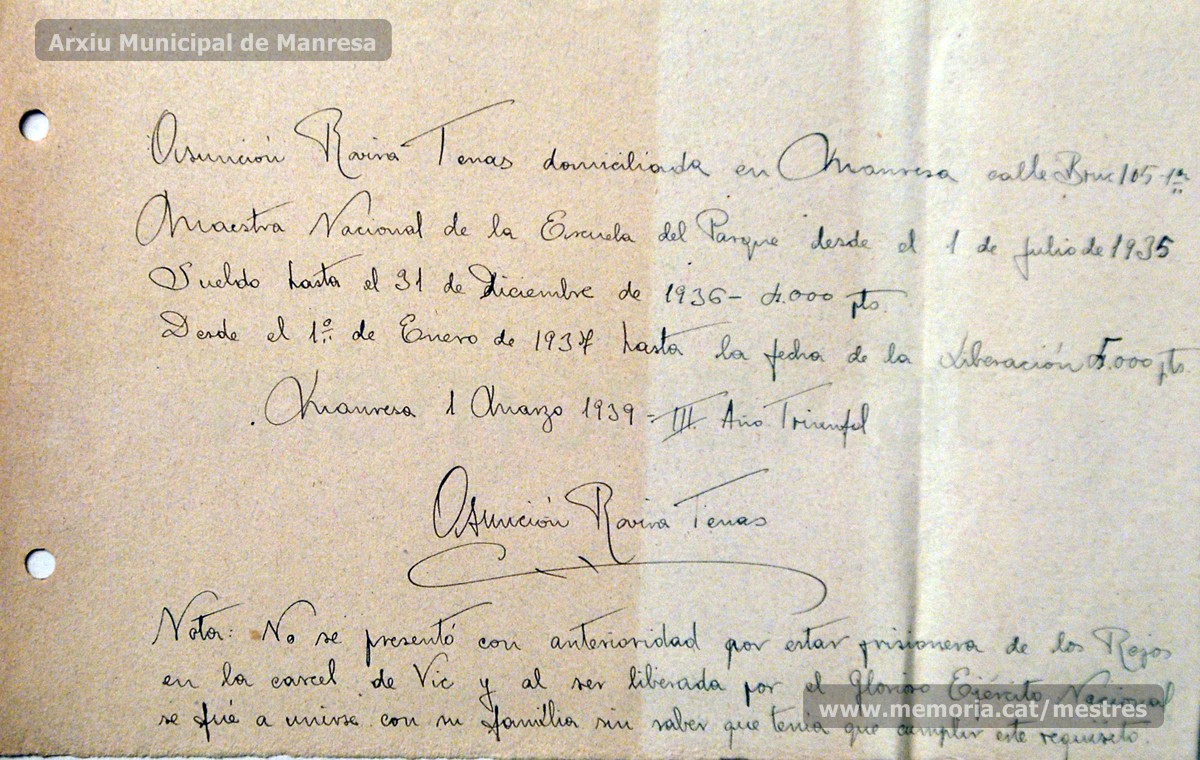 Arxiu Municipal de Manresa
Asunción Rovira Tenas domiciliada en Manresa calle Bruc 105-1º
Maestra Nacional de la Escuela del Parque desde el 1 de julio de 1935
Sueldo hasta el 31 de Diciembre de 1936 - 4.000 pts.
Desde el 1º de Enero de 1937 hasta la fecha de la Liberación 5.000 pts.
Manresa 1 Marzo 1939 = III Año Triunfal
Asunción Rovira Tenas
Nota: No se presentó con anterioridad por estar prisionera de los Rojos
en la carcel de Vic y al ser liberada por el Glorioso Ejército Nacional
se fué a unirse con su família sin saber que tenia que cumplir este requisito.
www.memoria.cat/mestres